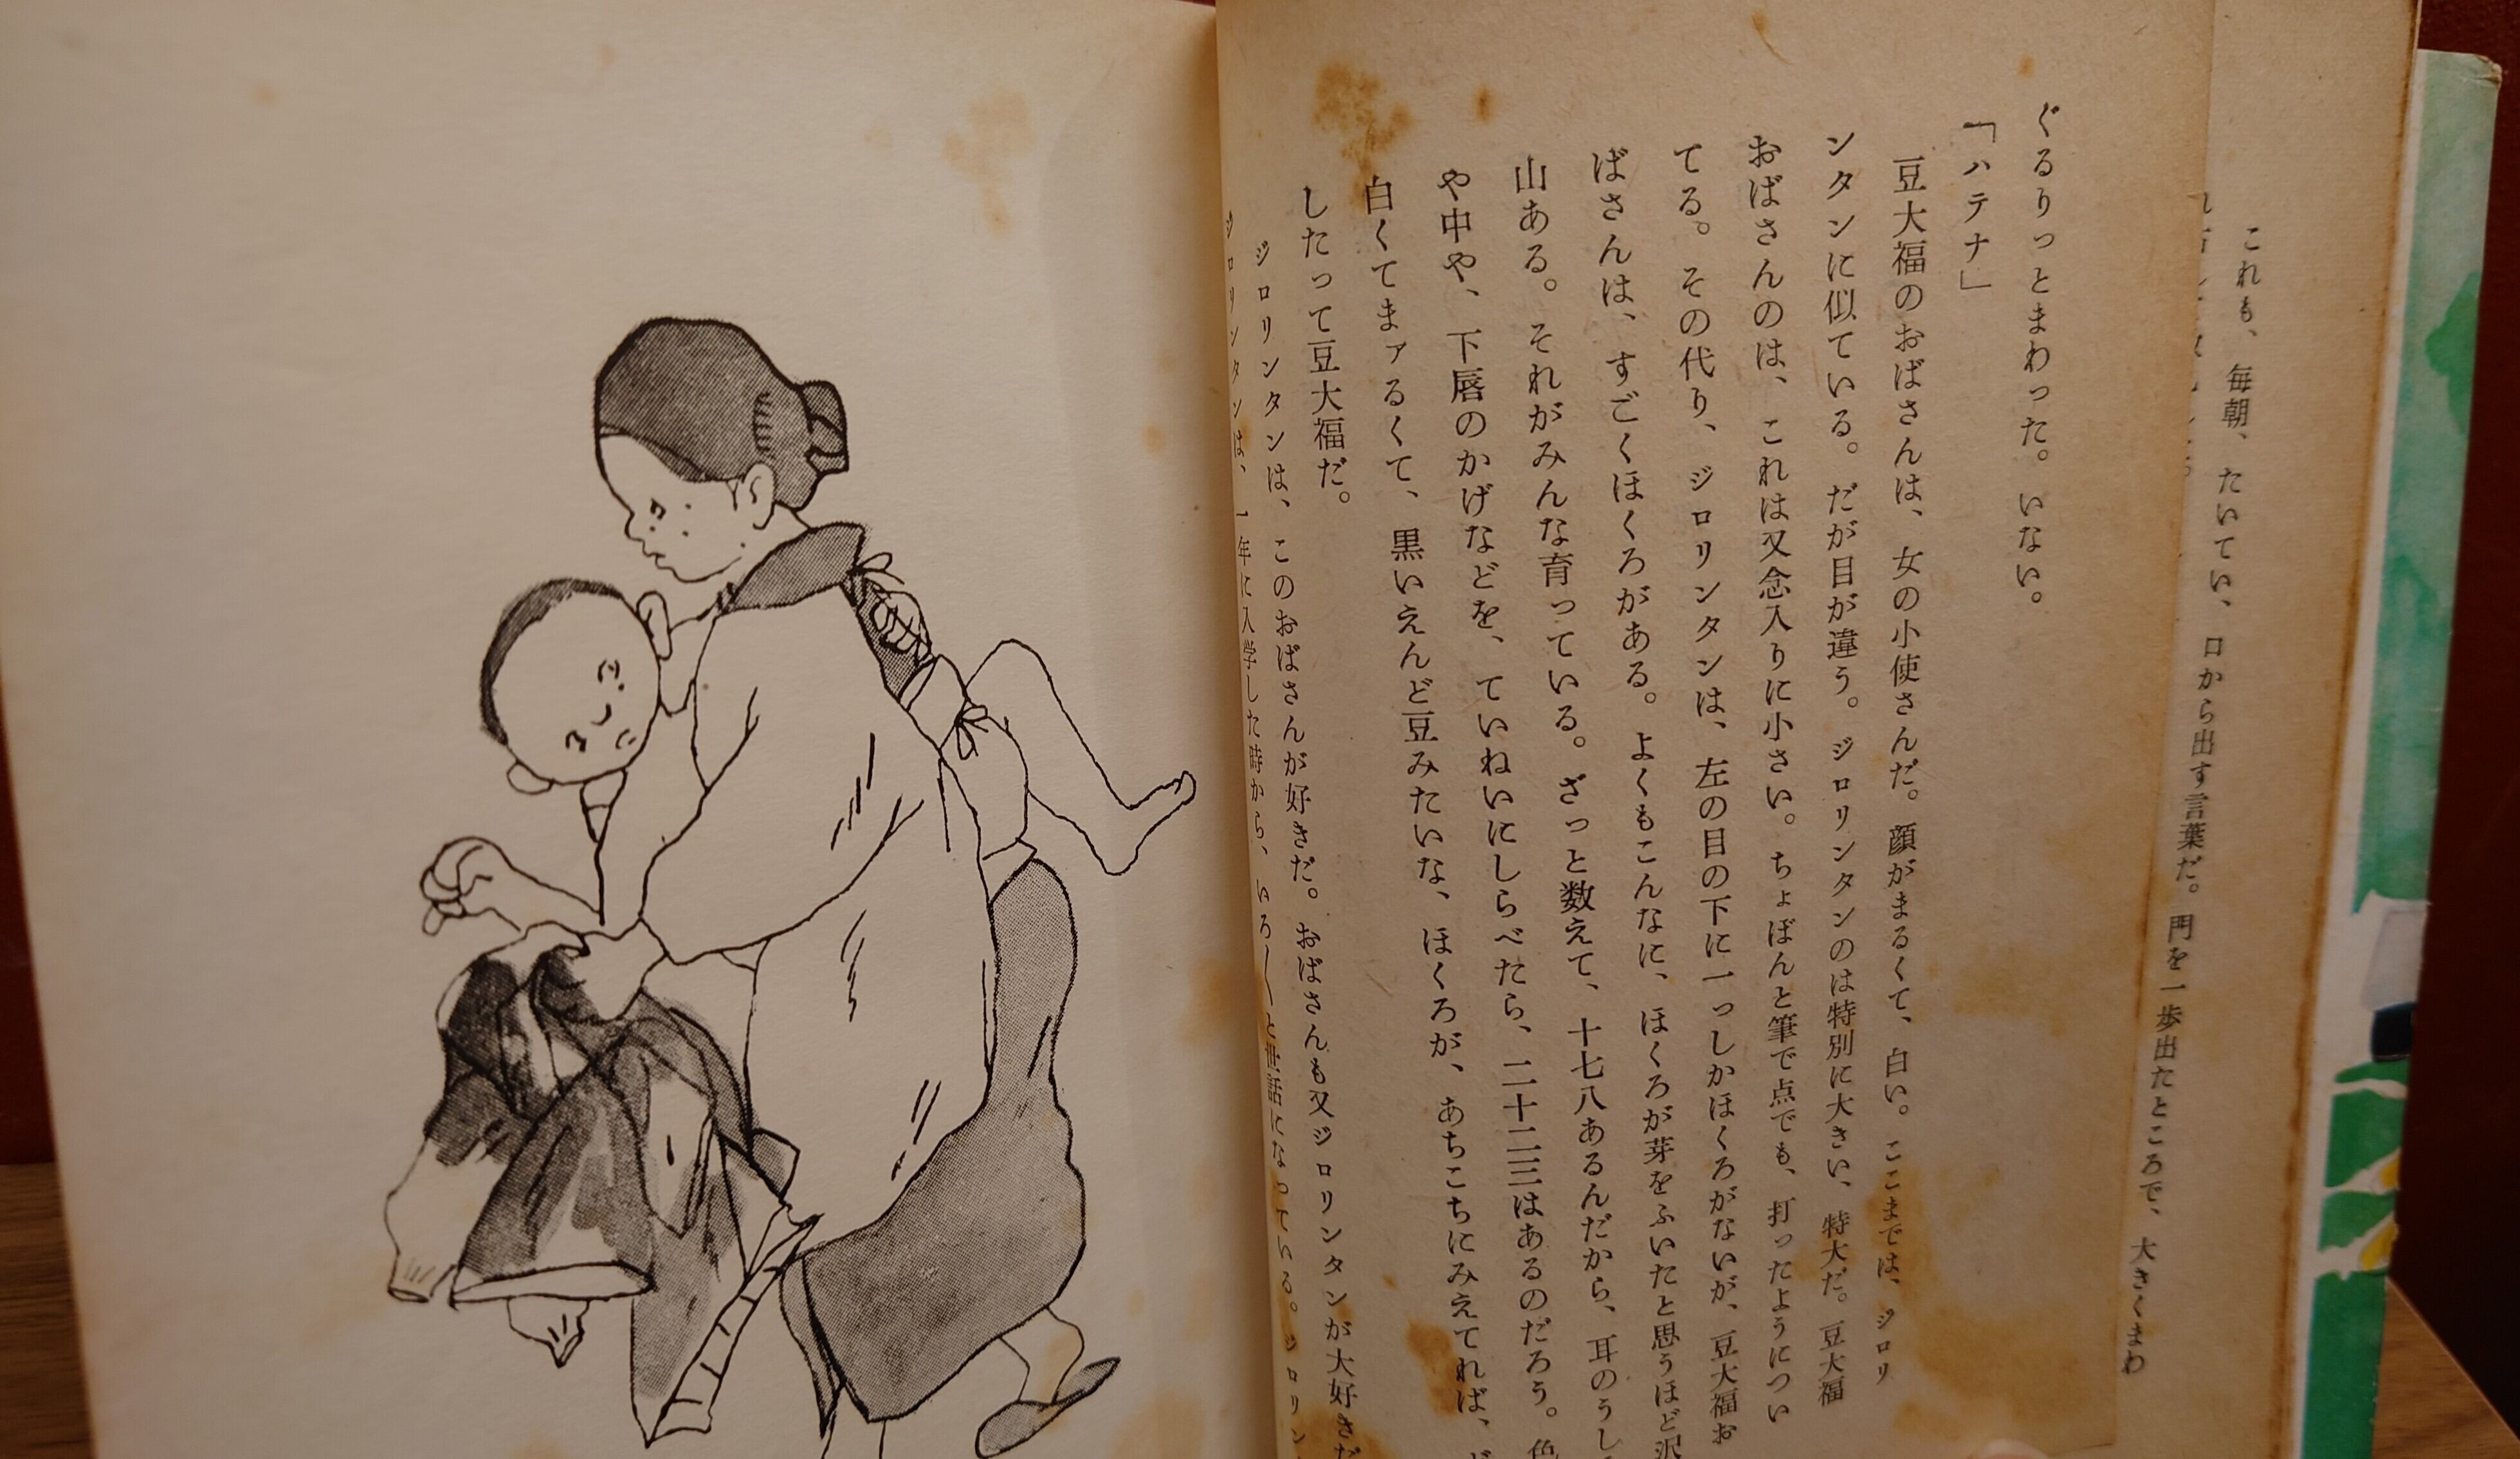 これも、毎朝、たいてい、口から出す言葉だ。門を一歩出たところで、大きくまわ
ぐるりっとまわった。いない。
「ハテナ」
豆大福のおばさんは、女の小使さんだ。顔がまるくて、白い。ここまでは、ジロリ
ンタンに似ている。だが目が違う。ジロリンタンのは特別に大きい、特大だ。豆大福
おばさんのは、これは又念入りに小さい。ちょぼんと筆で点でも、打ったようについ
てる。その代り、ジロリンタンは、左の目の下に一っしかほくろがないが、豆大福お
ばさんは、すごくほくろがある。よくもこんなに、ほくろが芽をふいたと思うほど沢
山ある。それがみんな育っている。ざっと数えて、十七八あるんだから、耳のうし
や中や、下唇のかげなどを、ていねいにしらべたら、二十二三はあるのだろう。色
白くてまァるくて、黒いえんど豆みたいな、ほくろが、あちこちにみえてれば、ど
したって豆大福だ。
ジロリンタンは、このおばさんが好きだ。おばさんも又ジロリンタンが大好きだ
ジロリンタンは、一年に入学した時から、いろ〱と世話になっている。ジロリン